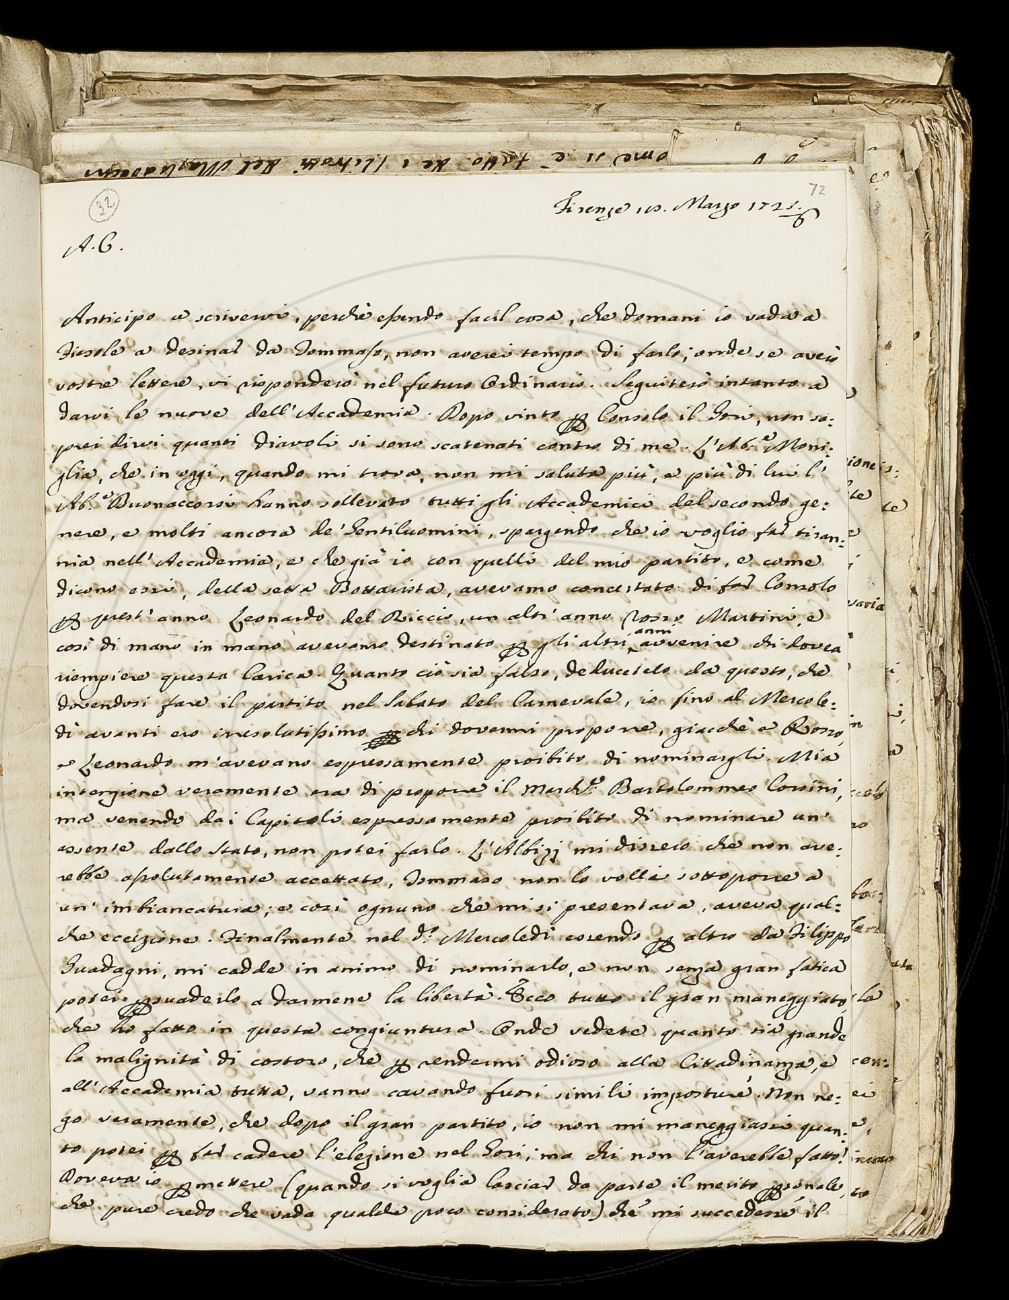 72
32
Firenze 10. Marzo 1725/6
A. C.
Anticipo a scrivervi, perchè essendo facil cosa, che domani io vada a
Fiesole a desinar da Tommaso, non averei tempo di farlo; onde se averò
vostre lettere, vi risponderò nel futuro Ordinario. Seguiterò intanto a
darvi le nuove dell'Accademia. Dopo vinto p Consolo il Gori, non sa=
prei dirvi quanti diavoli si sono scatenati contro di me. L'Ab.e Moni=
glia, che in oggi, quando mi trova, non mi saluta più, e più di lui l'
Ab.e Buonaccorsi hanno sollevato tutti gli Accademici del secondo ge=
nere, e molti ancora de' Gentiluomini, spargendo che io voglio far tiran=
nia nell'Accademia, e che già io con quelli del mio partito, e come
dicono essi, della setta Bottarista, avevamo concertato di far Consolo
p quest'anno Leonardo del Riccio, un altr'anno Rosso Martini, e
così di mano in mano avevamo destinato p gli altri anni avvenire chi dovea
riempiere questa Carica. Quanto ciò sia falso, deducetelo da questo, che
dovendosi fare il partito nel Sabato del Carnevale, io fino al Mercole=
dì avanti ero irresolutissimo chi dovermi proporre, giacchè e Rosso,
e Leonardo m'avevano espressamente proibito di nominargli. Mia
intenzione veramente era di proporre il March.e Bartolommeo Corsini,
ma venendo dai Capitoli espressamente proibito di nominare un'
assente dallo Stato, non potei farlo. L'Albizzi mi disse che non ave=
rebbe assolutamente accettato, Tommaso non lo volli sottoporre a
un'imbiancatura; e così ognuno che mi si presentava, aveva qual=
che eccezione. Finalmente nel d.o Mercoledì essendo p altro da Filippo
Guadagni, mi cadde in animo di nominarlo, e non senza gran fatica
potei psuaderlo a darmene la libertà. Ecco tutto il gran maneggiato,
che ho fatto in questa congiuntura. Onde vedete quanto sia grande
la malignità di costoro, che p rendermi odioso alla Cittadinanza, e
all'Accademia tutta, vanno cavando fuori simili imposture. Non ne=
go veramente, che dopo il gran partito, io non mi maneggiassi quan=
to potei p far cadere l'elezione nel Gori; ma chi non l'averebbe fatto?
Doveva io pmettere (quando si voglia lasciar da parte il merito psonale,
che pure credo che vada qualche poco considerato) che mi succedesse il